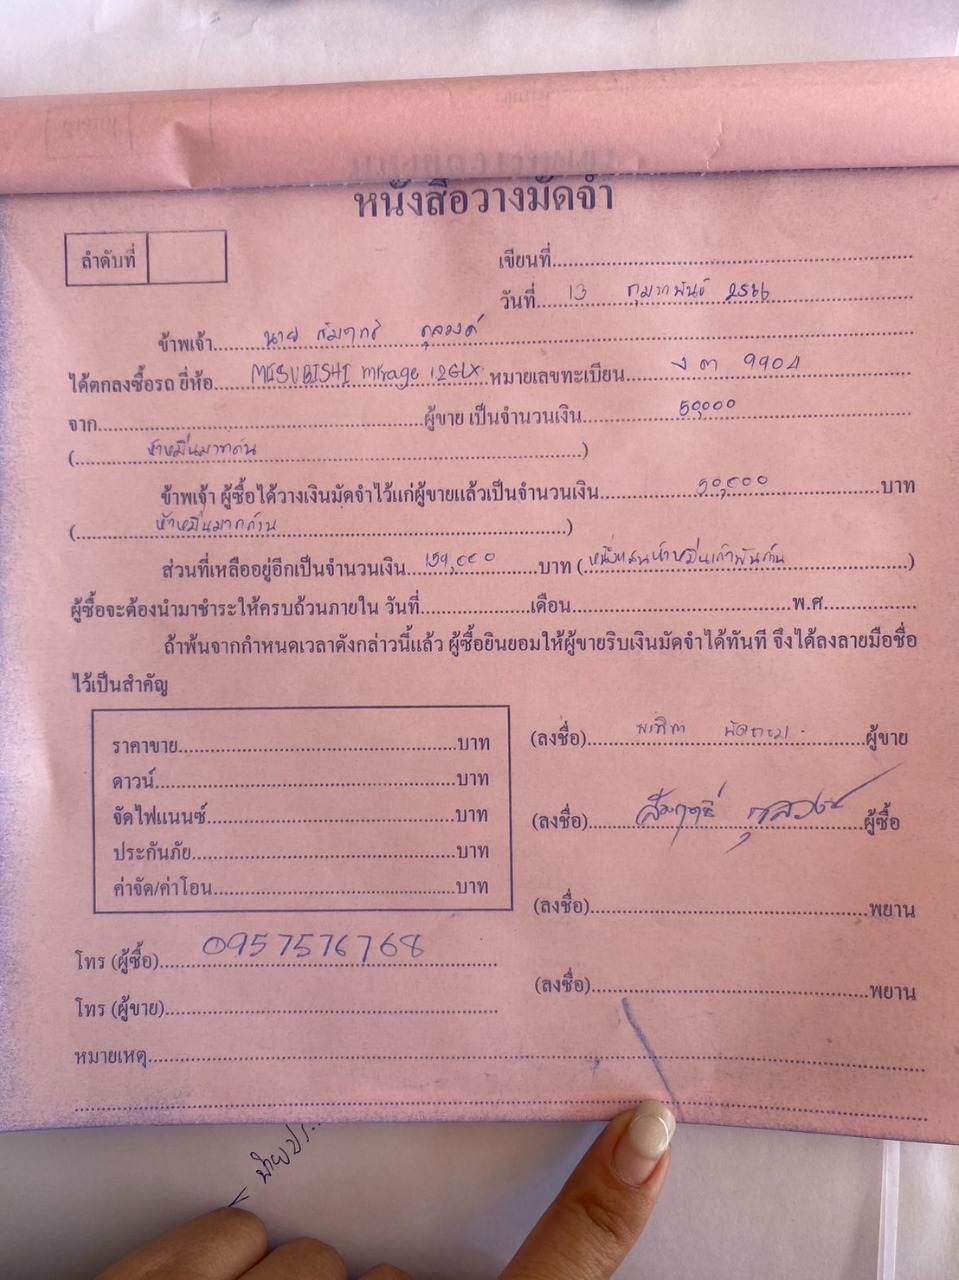 หนังสือวางมัดจำ
ลำดับที่
เขียนที่
วันที่ 13 กุมภาพันธ์ 2566
ข้าพเจ้า นาย สัมฤทธิ์ กุลวงค์
ได้ตกลงซื้อรถ ยี่ห้อ MUSUBISHI mirage 1.2GLX หมายเลขทะเบียน งต 9904
จาก ผู้ขาย เป็นจำนวนเงิน 50,000
(ห้าหมื่นบาทถ้วน)
ข้าพเจ้า ผู้ซื้อได้วางเงินมัดจำไว้แก่ผู้ขายแล้วเป็นจำนวนเงิน 50,000 บาท
(ห้าหมื่นบาทถ้วน)
ส่วนที่เหลืออยู่อีกเป็นจำนวนเงิน 159,000 บาท (หนึ่งแสนห้าหมื่นเก้าพันถ้วน)
ผู้ซื้อจะต้องนำมาชำระให้ครบถ้วนภายใน วันที่ เดือน พ.ศ.
ถ้าพ้นจากกำหนดเวลาดังกล่าวนี้แล้ว ผู้ซื้อยินยอมให้ผู้ขายริบเงินมัดจำได้ทันที จึงได้ลงลายมือชื่อ
ไว้เป็นสำคัญ
ราคาขาย บาท
ดาวน์ บาท
จัดไฟแนนซ์ บาท
ประกันภัย บาท
ค่าจัด/ค่าโอน บาท
(ลงชื่อ) ผู้ขาย
(ลงชื่อ) สัมฤทธิ์ กุลวงษ์ ผู้ซื้อ
(ลงชื่อ) พยาน
(ลงชื่อ) พยาน
โทร (ผู้ซื้อ) 0957576768
โทร (ผู้ขาย)
หมายเหตุ